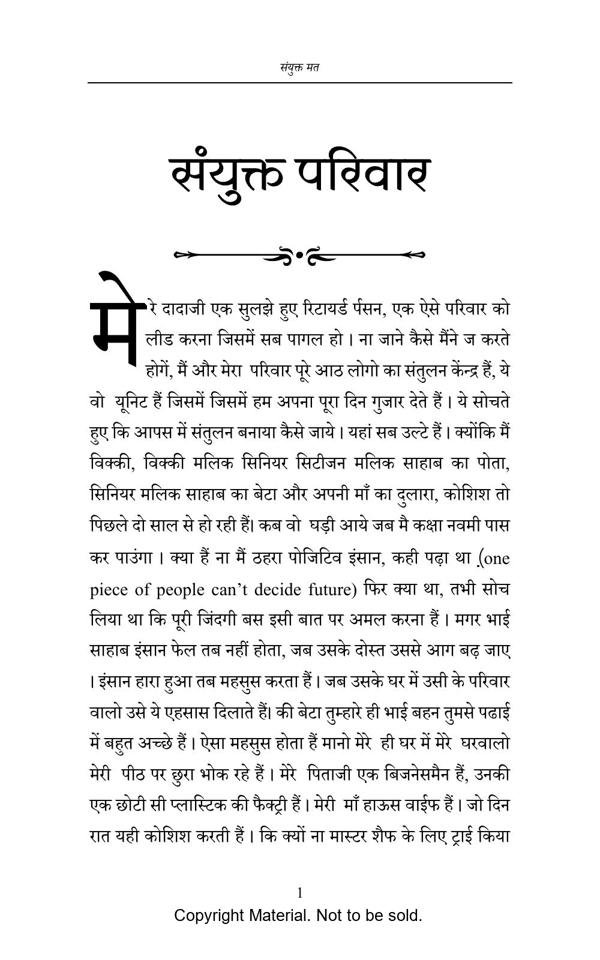 संयुक्त मत
संयुक्त परिवार
मेरे दादाजी एक सुलझे हुए रिटायर्ड र्पसन, एक ऐसे परिवार को
लीड करना जिसमें सब पागल हो । ना जाने कैसे मैंने ज करते
होगें, मैं और मेरा परिवार पूरे आठ लोगो का संतुलन केंन्द्र हैं, ये
वो यूनिट हैं जिसमें जिसमें हम अपना पूरा दिन गुजार देते हैं । ये सोचते
हुए कि आपस में संतुलन बनाया कैसे जाये । यहां सब उल्टे हैं । क्योंकि मैं
विक्की, विक्की मलिक सिनियर सिटीजन मलिक साहाब का पोता,
सिनियर मलिक साहाब का बेटा और अपनी माँ का दुलारा, कोशिश तो
पिछले दो साल से हो रही हैं। कब वो घड़ी आये जब मै कक्षा नवमी पास
कर पाउंगा । क्या हैं ना मैं ठहरा पोजिटिव इंसान, कही पढ़ा था (one
piece of people can’t decide future) फिर क्या था, तभी सोच
लिया था कि पूरी जिंदगी बस इसी बात पर अमल करना हैं । मगर भाई
साहाब इंसान फेल तब नहीं होता, जब उसके दोस्त उससे आग बढ़ जाए
। इंसान हारा हुआ तब महसुस करता हैं । जब उसके घर में उसी के परिवार
वालो उसे ये एहसास दिलाते हैं। की बेटा तुम्हारे ही भाई बहन तुमसे पढाई
में बहुत अच्छे हैं । ऐसा महसुस होता हैं मानो मेरे ही घर में मेरे घरवालो
मेरी पीठ पर छुरा भोक रहे हैं । मेरे पिताजी एक बिजनेसमैन हैं, उनकी
एक छोटी सी प्लास्टिक की फैक्ट्री हैं । मेरी माँ हाऊस वाईफ हैं । जो दिन
रात यही कोशिश करती हैं । कि क्यों ना मास्टर शैफ के लिए ट्राई किया
1
Copyright Material. Not to be sold.